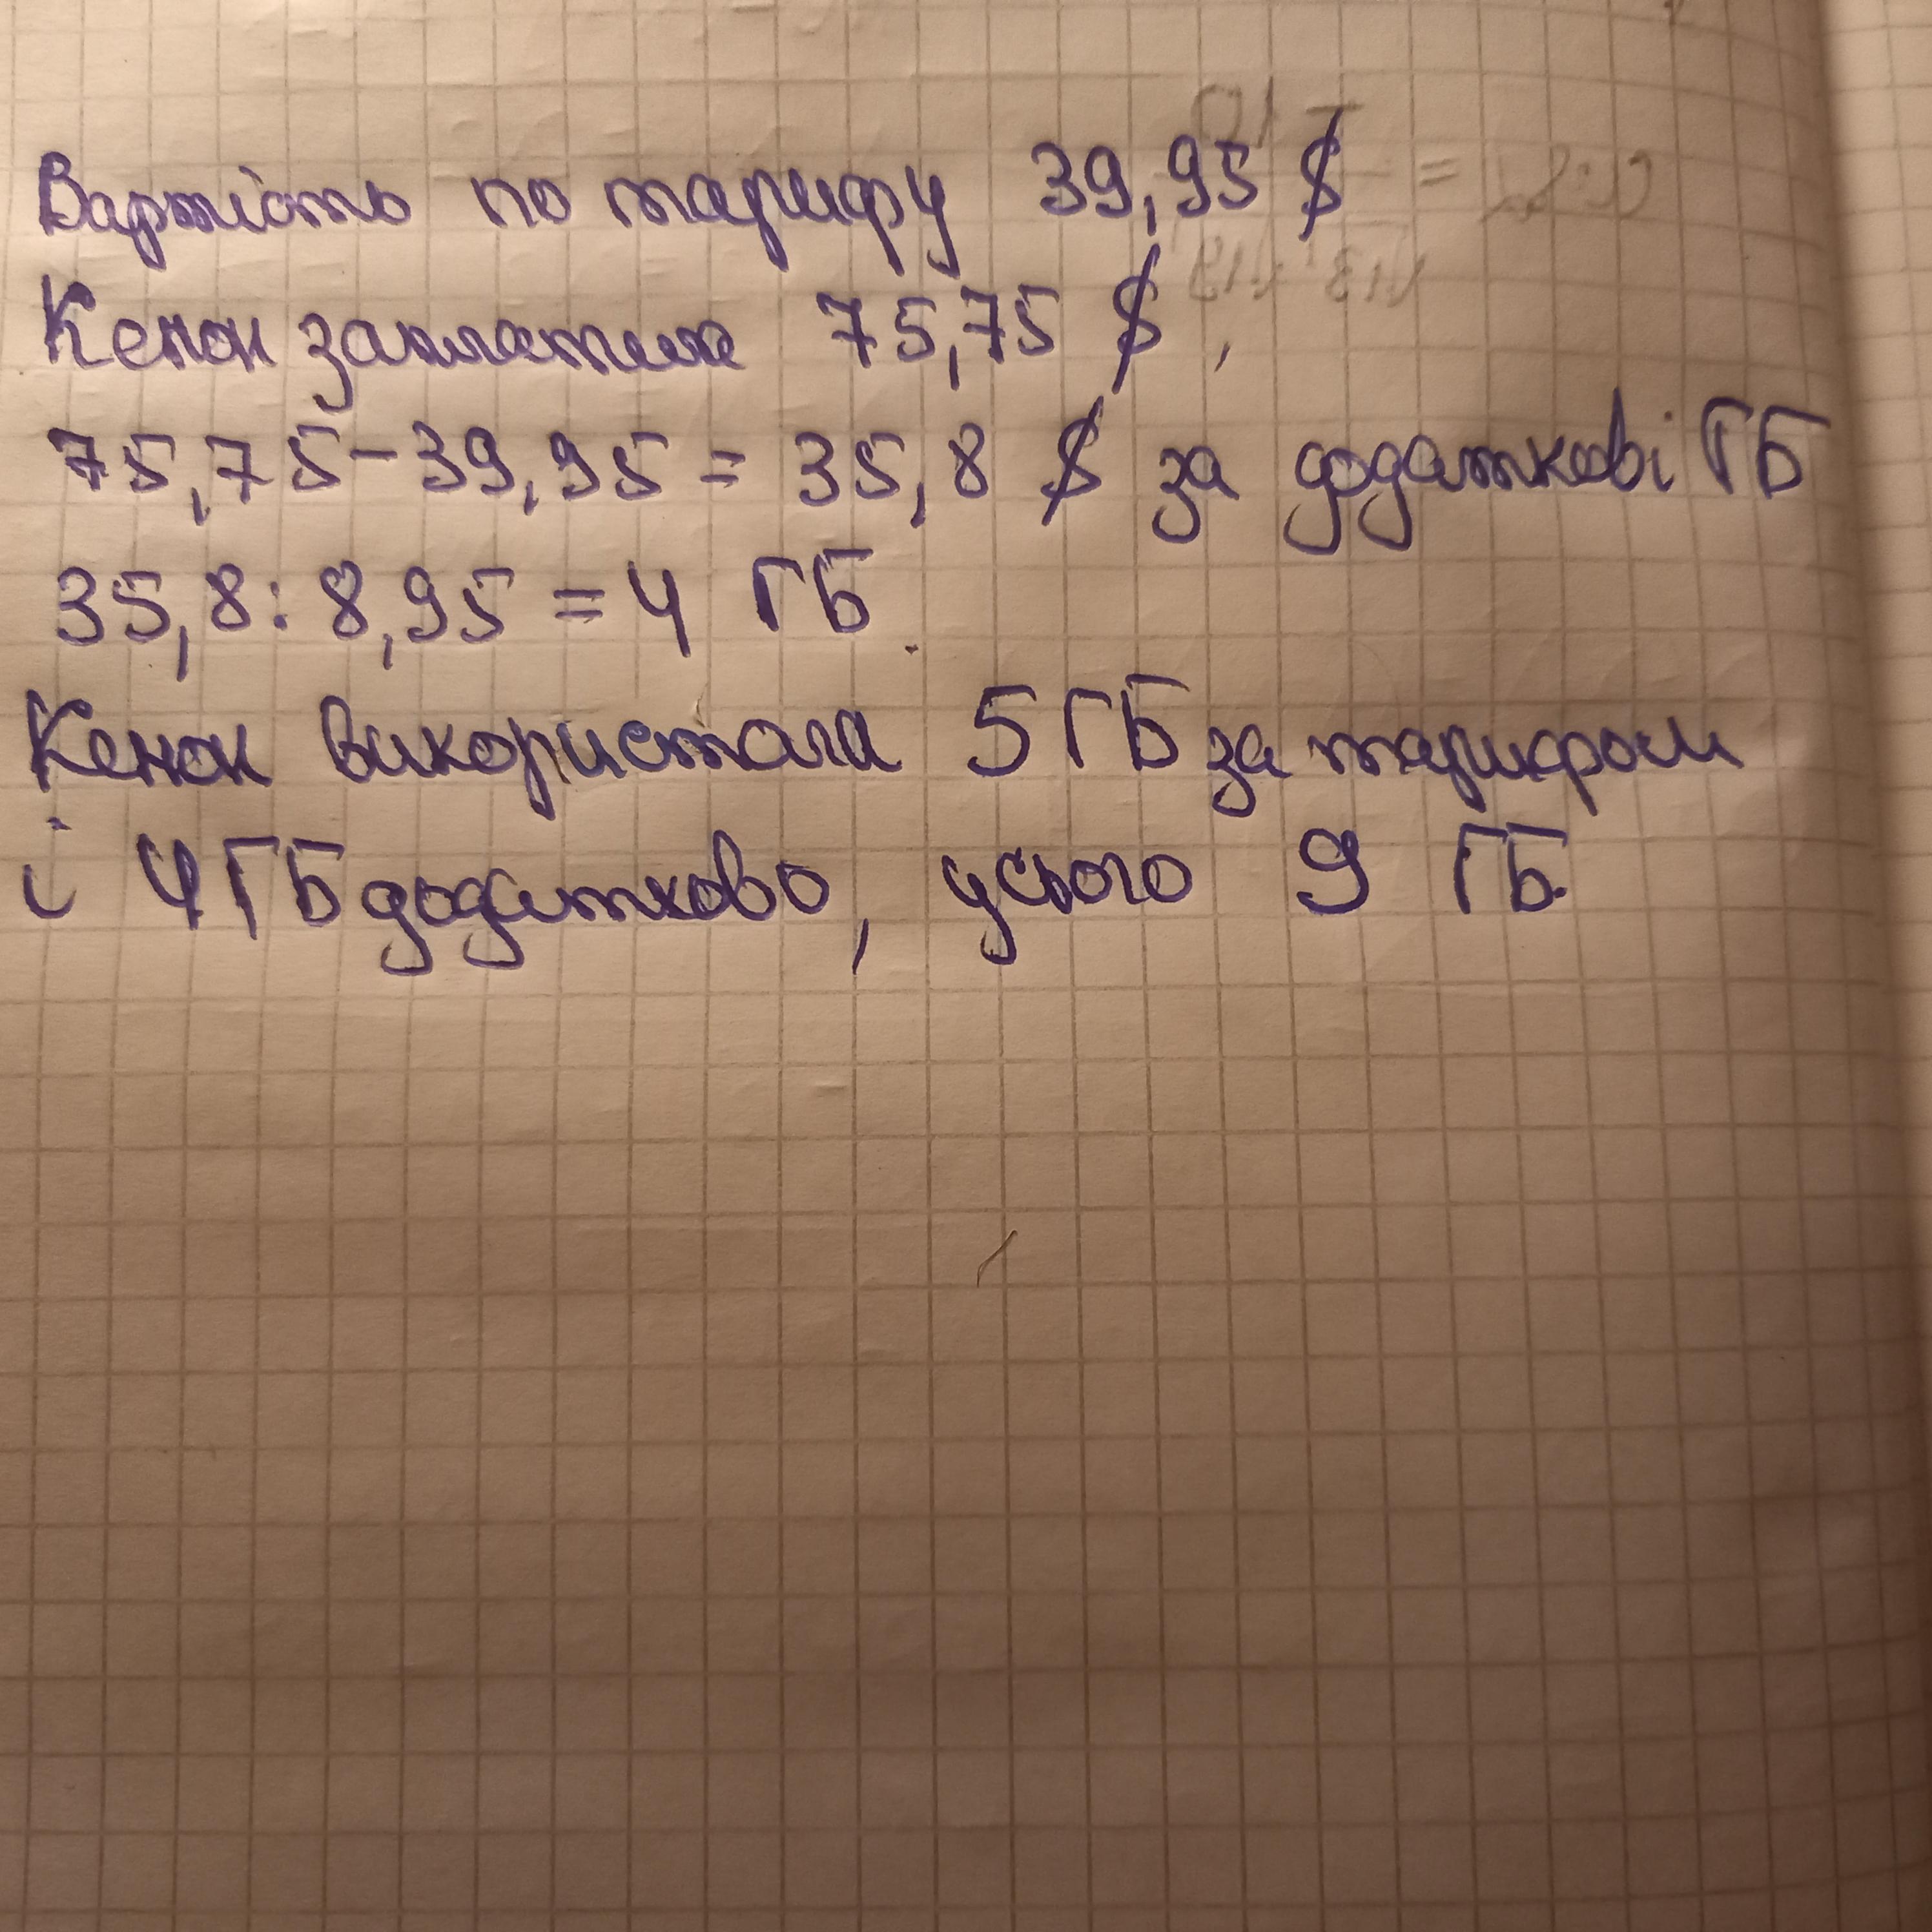 Вартість по тарифу 39,95 $
Кенон заплатила 75,75 $,
75,75-39,95 = 35,8 $ за додаткові ГБ
35,8 : 8,95 = 4 ГБ.
Кенон використала 5 ГБ за тарифом
і 4 ГБ додатково, усього 9 ГБ.